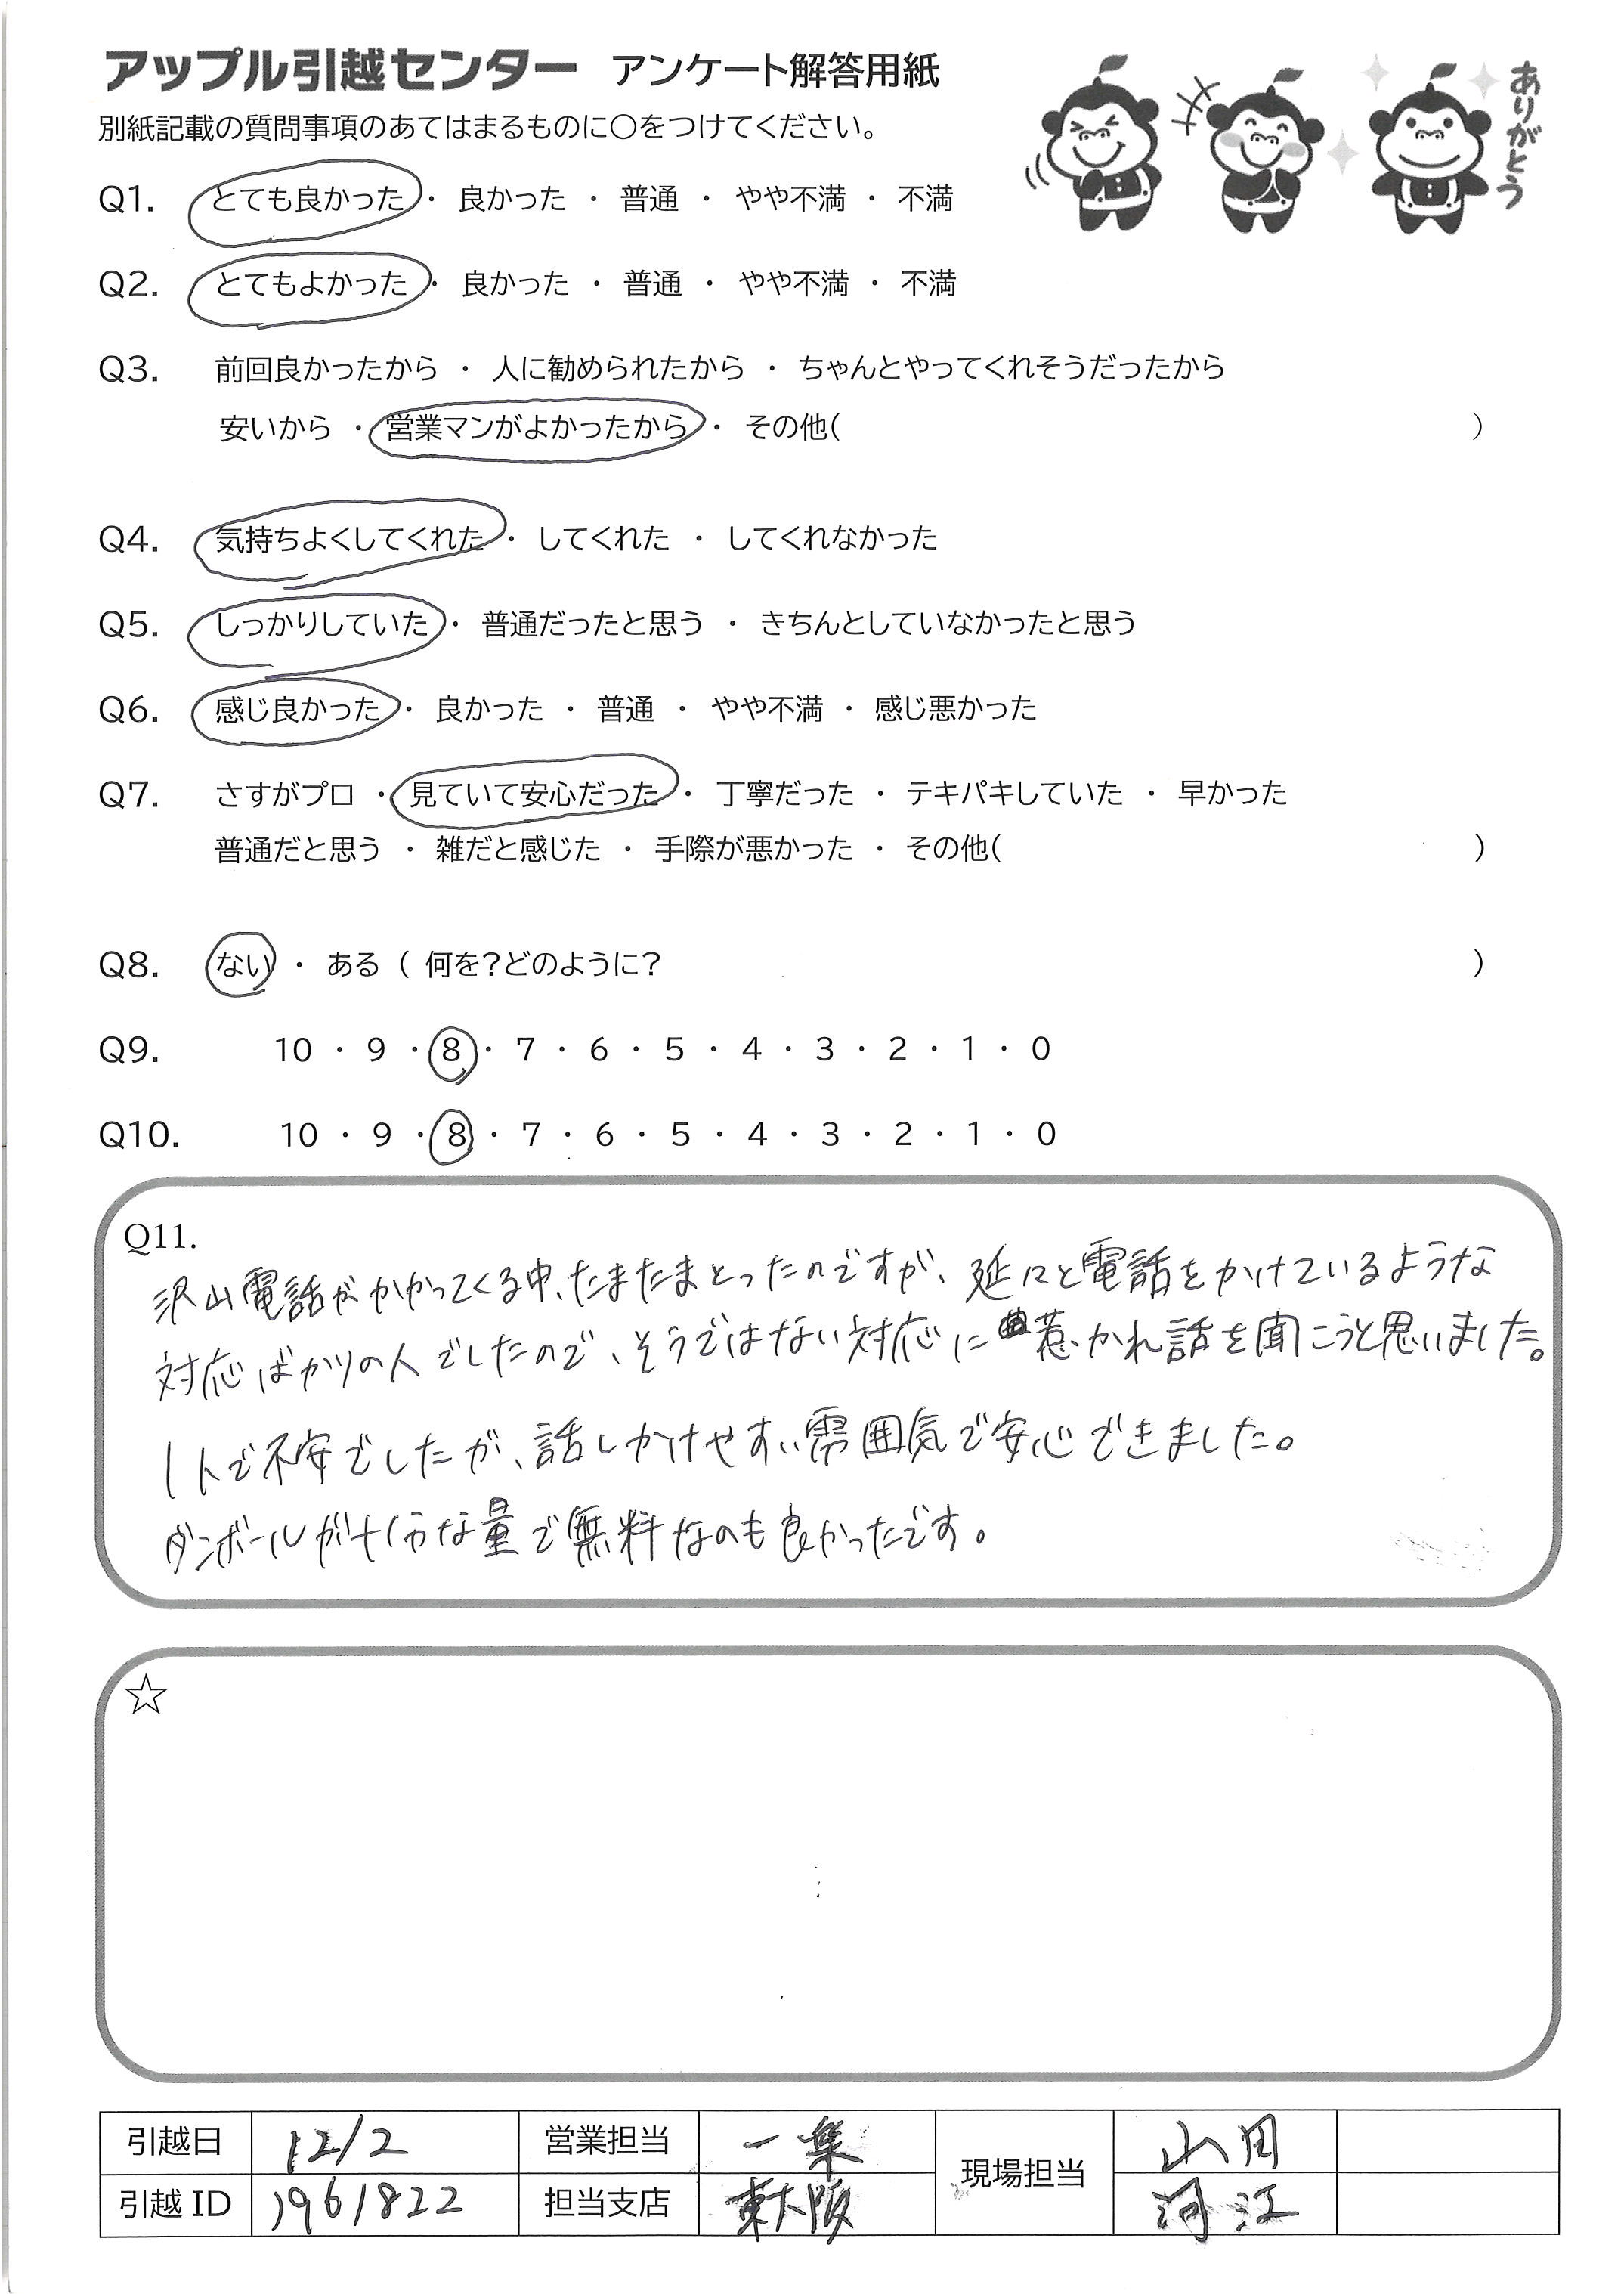 アップル引越センター アンケート解答用紙
別紙記載の質問事項のあてはまるものに○をつけてください。
ありがとう
Q1. とても良かった ・ 良かった ・ 普通 ・ やや不満 ・ 不満
Q2. とてもよかった ・ 良かった ・ 普通 ・ やや不満 ・ 不満
Q3. 前回良かったから ・ 人に勧められたから ・ ちゃんとやってくれそうだったから
安いから ・ 営業マンがよかったから ・ その他( )
Q4. 気持ちよくしてくれた ・ してくれた ・ してくれなかった
Q5. しっかりしていた ・ 普通だったと思う ・ きちんとしていなかったと思う
Q6. 感じ良かった ・ 良かった ・ 普通 ・ やや不満 ・ 感じ悪かった
Q7. さすがプロ ・ 見ていて安心だった ・ 丁寧だった ・ テキパキしていた ・ 早かった
普通だと思う ・ 雑だと感じた ・ 手際が悪かった ・ その他( )
Q8. ない ・ ある ( 何を?どのように? )
Q9. 10 ・ 9 ・ 8 ・ 7 ・ 6 ・ 5 ・ 4 ・ 3 ・ 2 ・ 1 ・ 0
Q10. 10 ・ 9 ・ 8 ・ 7 ・ 6 ・ 5 ・ 4 ・ 3 ・ 2 ・ 1 ・ 0
Q11.
沢山電話がかかってくる中、たまたまとったのですが、延々と電話をかけているような
対応ばかりの人でしたので、そうではない対応に惹かれ話を聞こうと思いました。
1人で不安でしたが、話しかけやすい雰囲気で安心できました。
ダンボールが十分な量で無料なのも良かったです。
☆
引越日 12/2 営業担当 一 現場担当 山田
引越 ID 1961822 担当支店 東大阪 河江